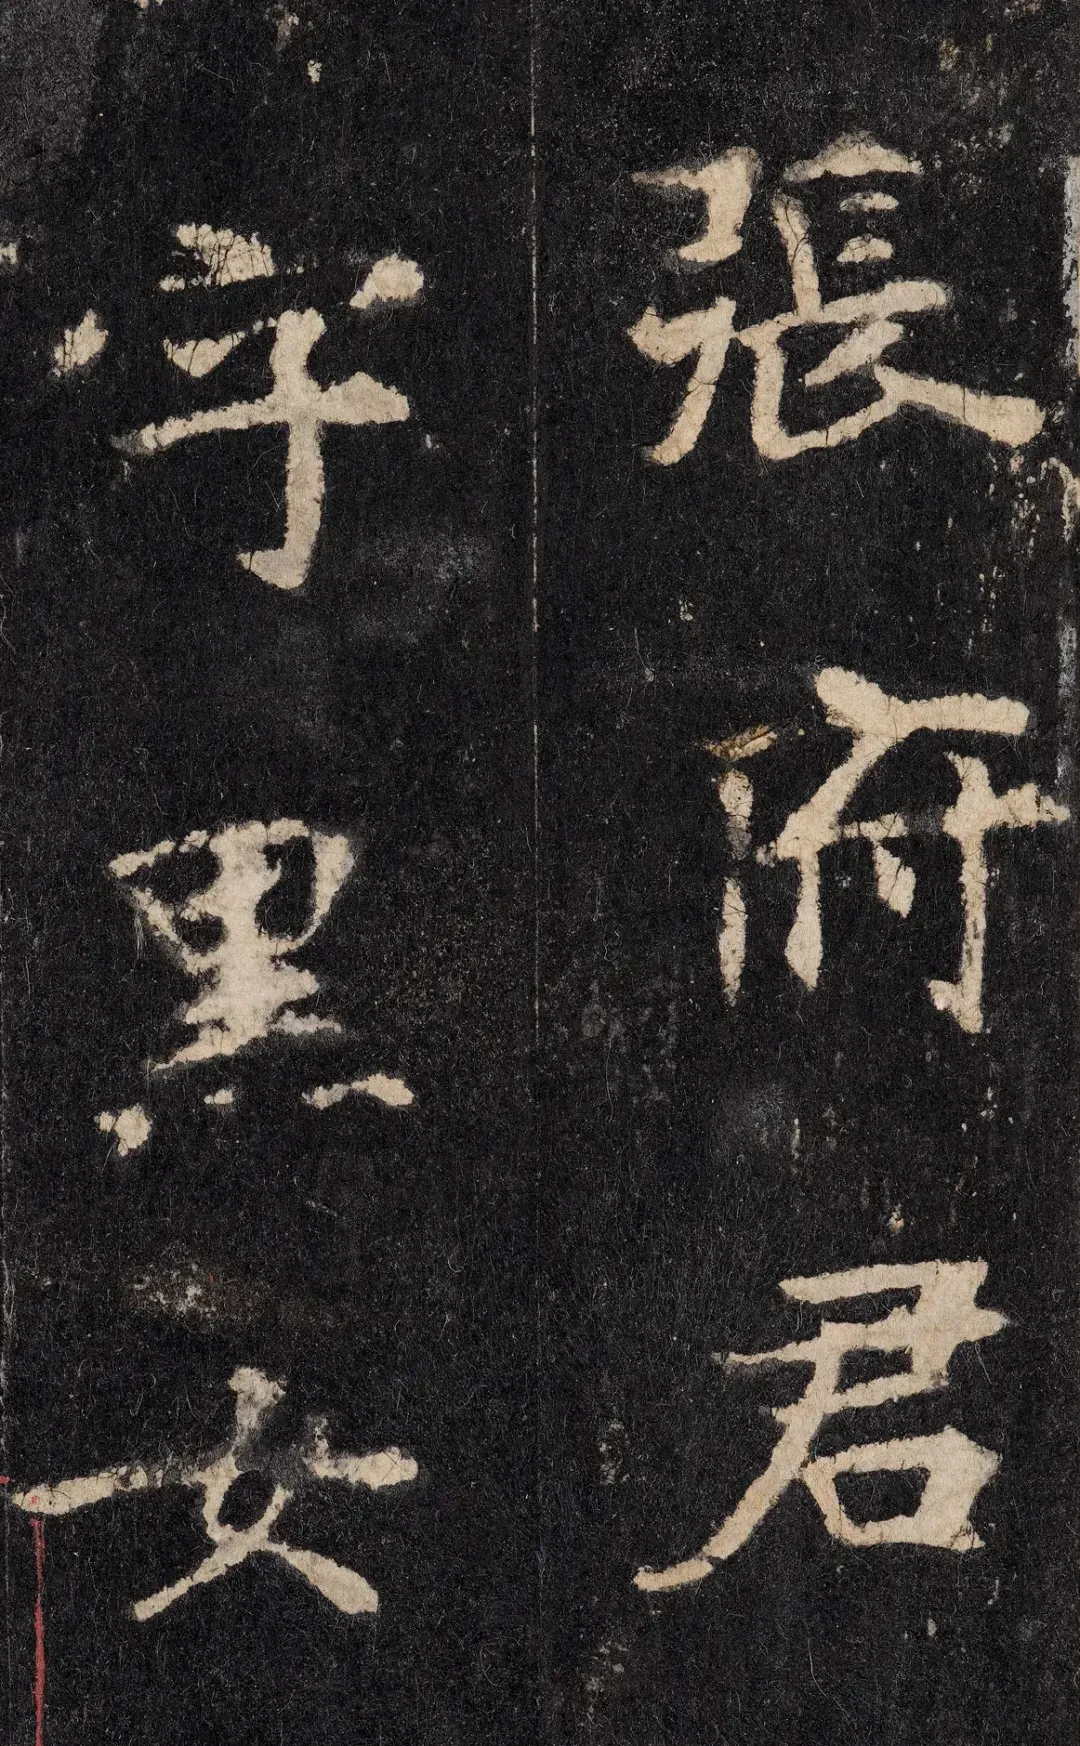 張府君
字黑女